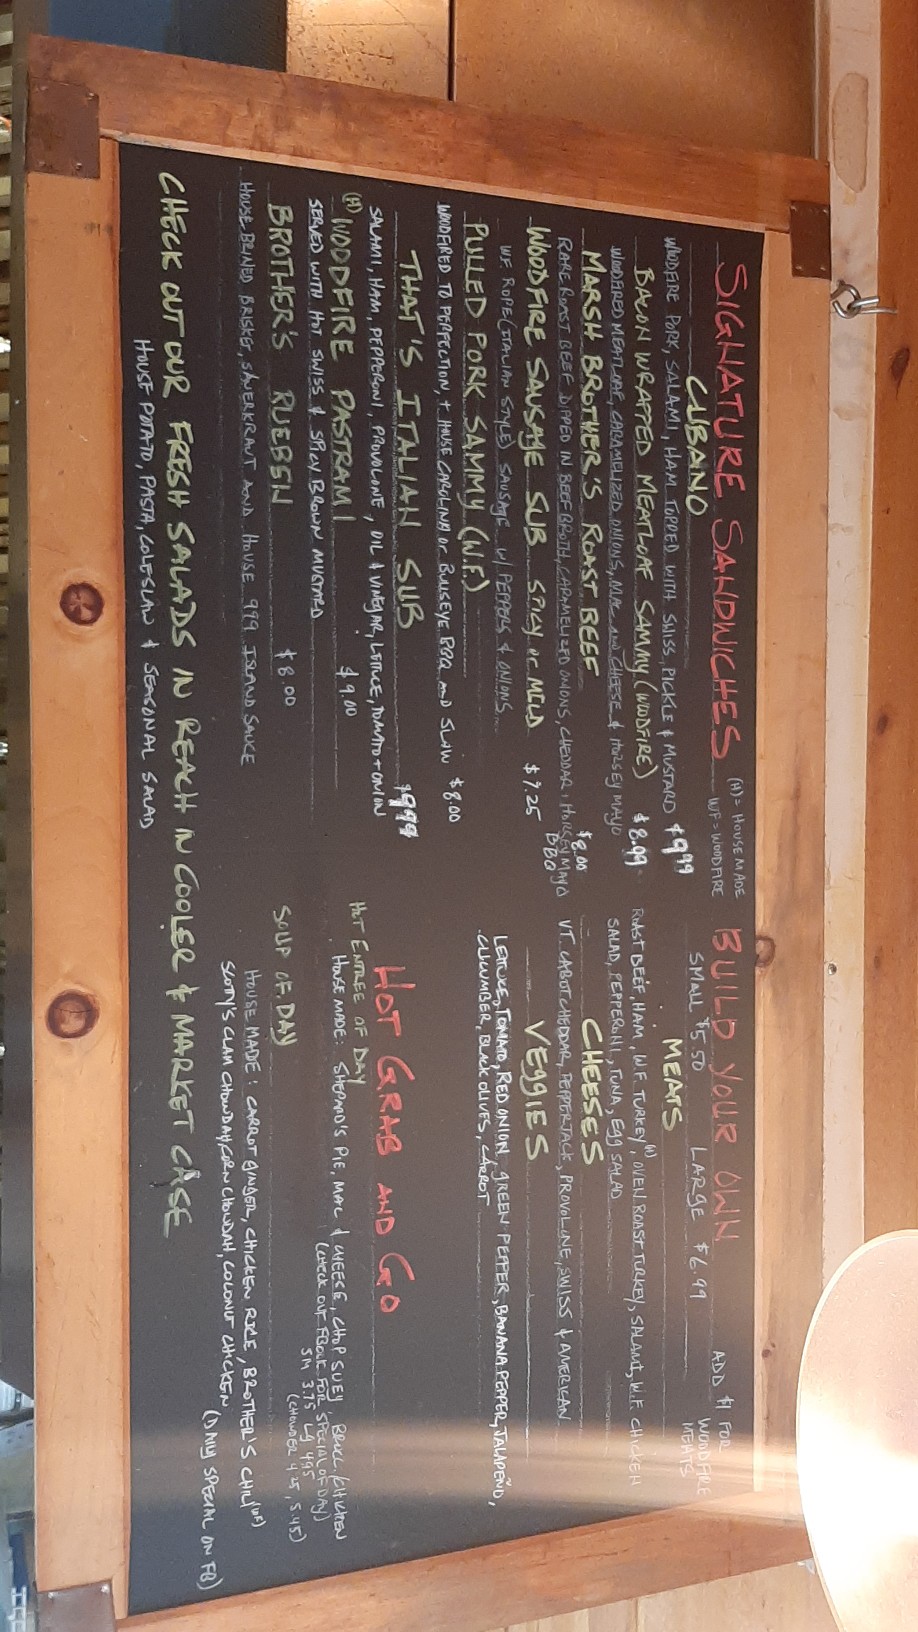 SIGNATURE SANDWICHES
(H) = HOUSE MADE
WF = WOODFIRE
CUBANO
WOODFIRE PORK, SALAMI, HAM TOPPED WITH SWISS, PICKLE & MUSTARD $9.99
BACON WRAPPED MEATLOAF SAMMY (WOODFIRE) $8.99
WOODFIRED MEATLOAF, CARAMELIZED ONIONS, MAC AND CHEESE & HORSEY MAYO
MARSH BROTHER'S ROAST BEEF $8.00
RARE ROAST BEEF DIPPED IN BEEF BROTH, CARAMELIZED ONIONS, CHEDDAR, HORSEY MAYO
BBQ
WOODFIRE SAUSAGE SUB SPICY or MILD $7.25
W.F. ROPE (ITALIAN STYLE) SAUSAGE w/ PEPPERS & ONIONS...
PULLED PORK SAMMY (W.F.)
WOODFIRED TO PERFECTION, + HOUSE CAROLINA or BULLSEYE BBQ AND SLAW $8.00
THAT'S ITALIAN SUB $9.99
SALAMI, HAM, PEPPERONI, PROVOLONE, OIL & VINEGAR, LETTUCE, TOMATO + ONION
(H) WOODFIRE PASTRAMI $9.00
SERVED WITH HOT SWISS & SPICY BROWN MUSTARD
BROTHER'S RUEBEN $8.00
HOUSE BRINED BRISKET, SAUERKRAUT AND HOUSE 999 ISLAND SAUCE
BUILD YOUR OWN
SMALL $5.50 LARGE $6.99
ADD $1 FOR
WOODFIRE
MEATS
MEATS
ROAST BEEF, HAM, W.F. TURKEY, (H) OVEN ROAST TURKEY, SALAMI, W.F. CHICKEN
SALAD, PEPPERONI, TUNA, EGG SALAD
CHEESES
VT. CABOT CHEDDAR, PEPPERJACK, PROVOLONE, SWISS & AMERICAN
VEGGIES
LETTUCE, TOMATO, RED ONION, GREEN PEPPER, BANANA PEPPER, JALAPEÑO,
CUCUMBER, BLACK OLIVES, CARROT
HOT GRAB AND GO
HOT ENTREE OF DAY
HOUSE MADE: SHEPARD'S PIE, MAC & CHEESE, CHOP SUEY, BROCC/CHICKEN
(CHECK OUT FBOOK FOR SPECIAL OF DAY)
SM 3.75 LG 4.95
SOUP OF DAY (CHOWDER 4.25, 5.45)
HOUSE MADE: CARROT GINGER, CHICKEN RICE, BROTHER'S CHILI (WF)
SCOTTY'S CLAM CHOWDAH, CORN CHOWDAH, COCONUT CHICKEN (DAILY SPECIAL ON FB)
CHECK OUT OUR FRESH SALADS IN REACH IN COOLER & MARKET CASE
HOUSE POTATO, PASTA, COLESLAW & SEASONAL SALAD